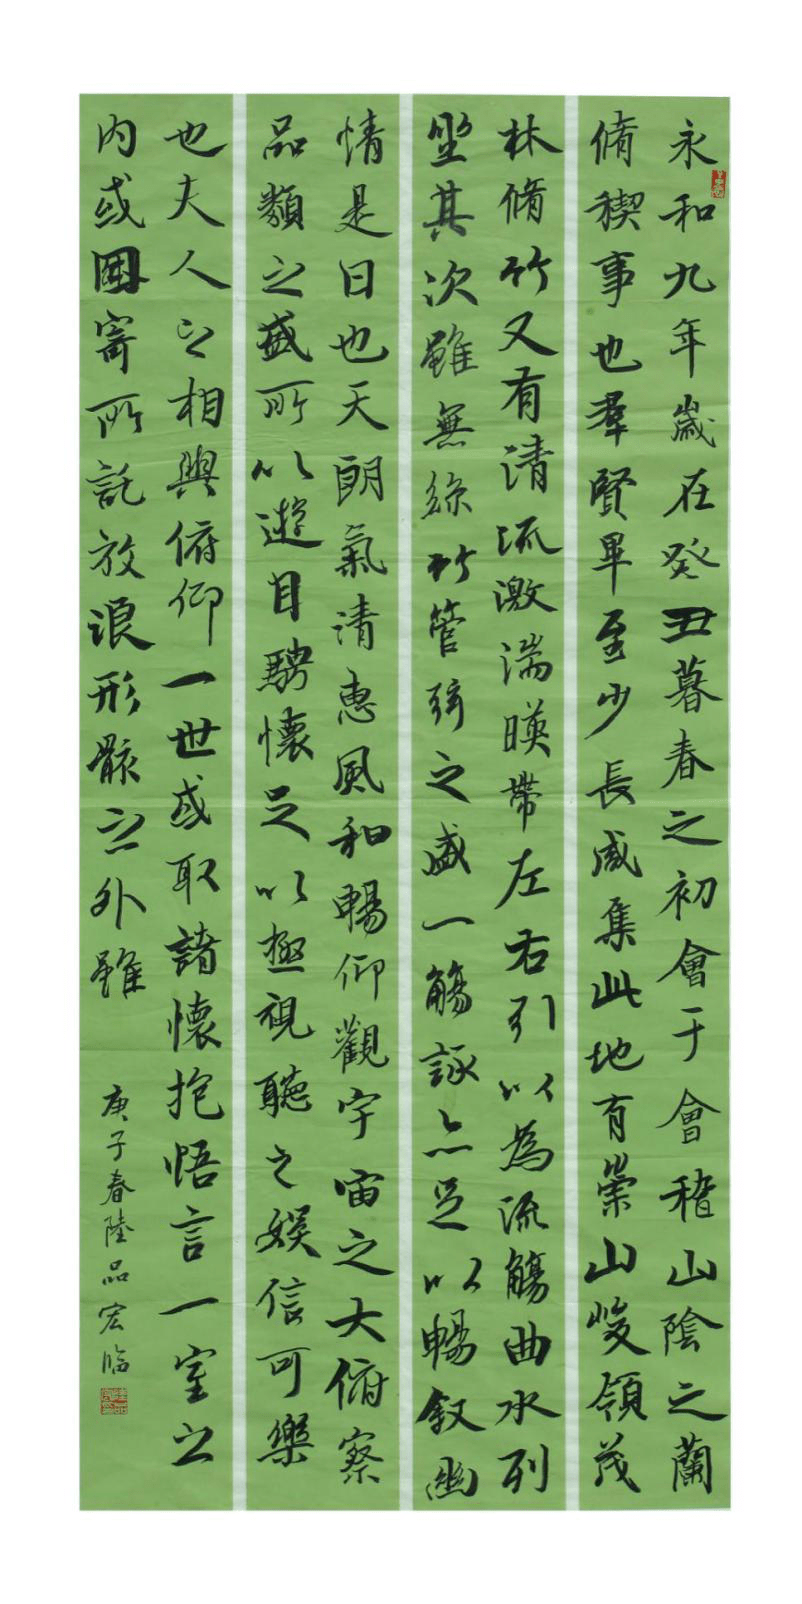 永和九年歲在癸丑暮春之初會于會稽山陰之蘭
脩稧事也羣賢畢至少長咸集此地有崇山峻領茂
林脩竹又有清流激湍暎帶左右引以為流觴曲水列
坐其次雖無絲竹管弦之盛一觴詠亦足以暢叙幽
情是日也天朗氣清惠風和暢仰觀宇宙之大俯察
品類之盛所以遊目騁懷足以極視聽之娛信可樂
也夫人之相與俯仰一世或取諸懷抱悟言一室之
內或因寄所託放浪形骸之外雖
庚子春陸品宏臨